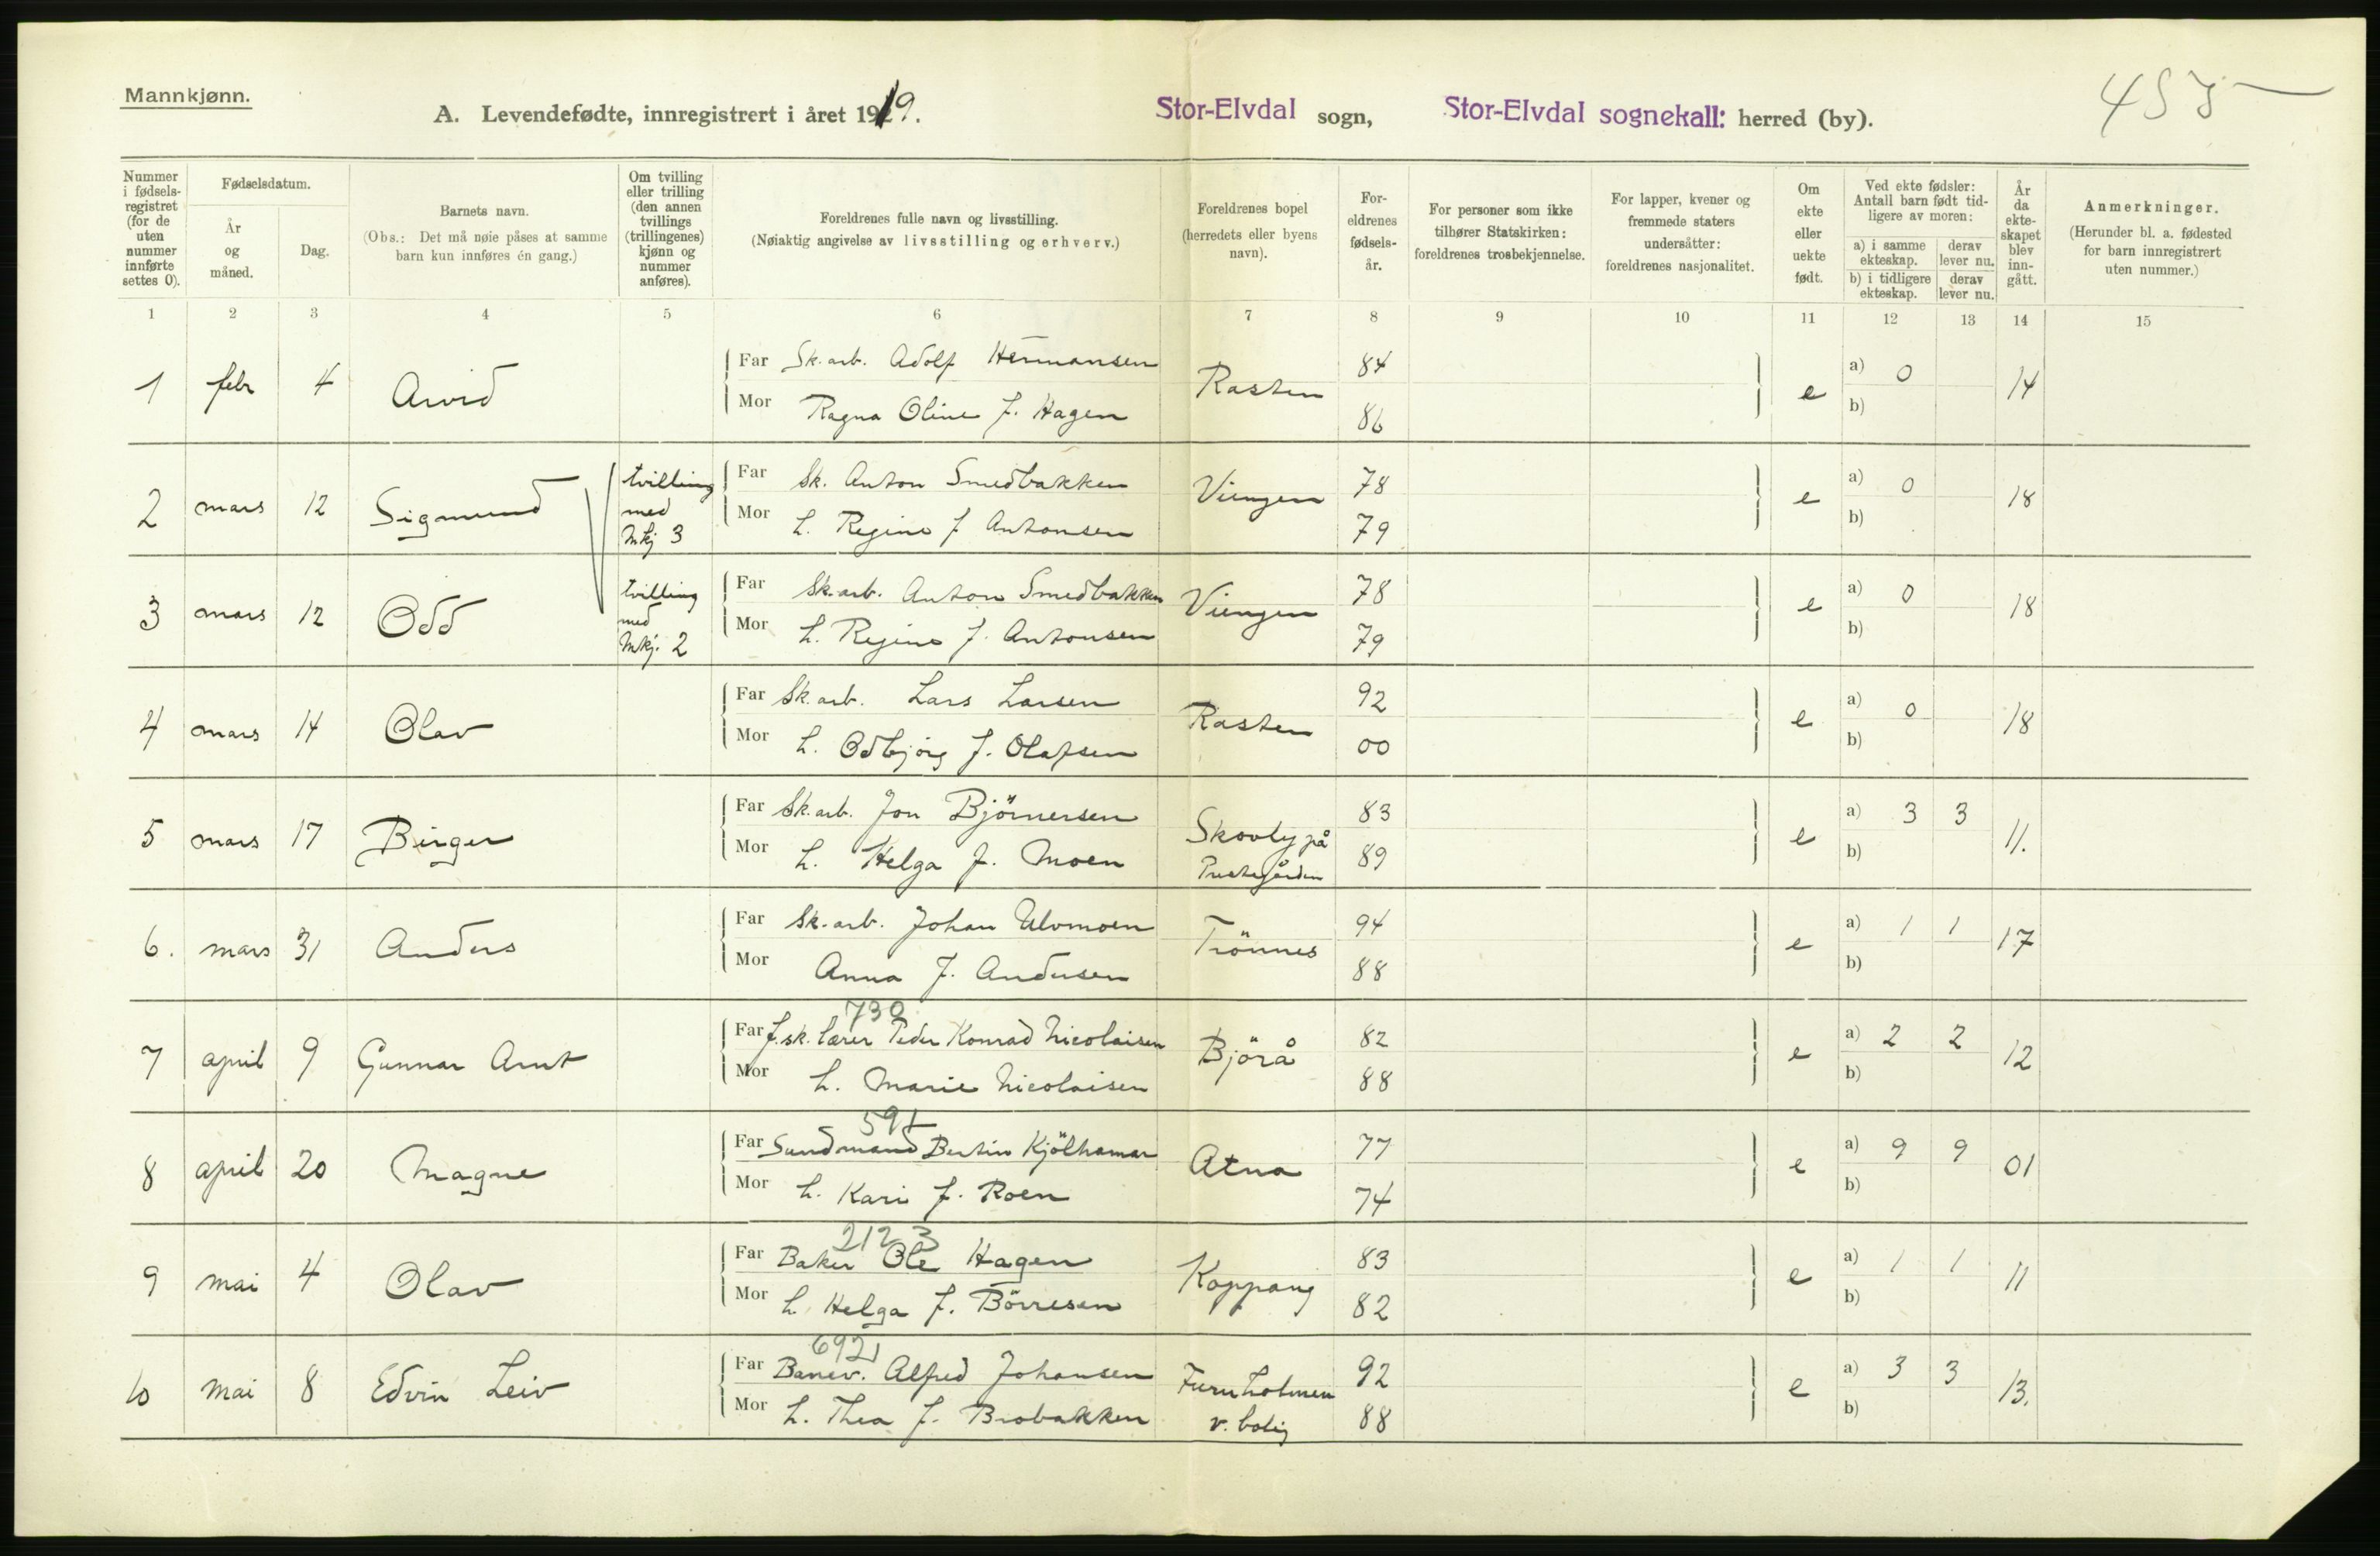 Mannkjønn.
A. Levendefødte, innregistrert i året 1919.
Stor-Elvdal sogn, Stor-Elvdal sognekall: herred (by).
Nummer i fødselsregistret (for de uten nummer innførte settes 0).
Fødselsdatum.
År og måned.
Dag.
Barnets navn.
(Obs.: Det må nøie påses at samme barn kun innføres én gang.)
Om tvilling eller trilling (den annen tvillings (trillingenes) kjønn og nummer anføres).
Foreldrenes fulle navn og livsstilling.
(Nøiaktig angivelse av livsstilling og erhverv.)
Foreldrenes bopel (herredets eller byens navn).
Foreldrenes fødselsår.
For personer som ikke tilhører Statskirken: foreldrenes trosbekjennelse.
For lapper, kvener og fremmede staters undersåtter: foreldrenes nasjonalitet.
Om ekte eller uekte født.
Ved ekte fødsler: Antall barn født tidligere av moren:
a) i samme ekteskap. derav lever nu.
b) i tidligere ekteskap. derav lever nu.
År da ekteskapet blev inngått.
Anmerkninger.
(Herunder bl. a. fødested for barn innregistrert uten nummer.)
1 2 3 4 5 6 7 8 9 10 11 12 13 14 15
1 febr 4 Arvid Far Sk.arb. Adolf Hermansen Rasten 84 e a) 0 14
Mor Ragna Oline f. Hagen 86 b)
2 mars 12 Sigmund tvilling med Mkj 3 Far Sk. Anton Smedbakken Viengen 78 e a) 0 18
Mor h. Regine f Antonsen 79 b)
3 mars 12 Odd tvilling med Mkj. 2 Far Sk.arb. Anton Smedbakken Viengen 78 e a) 0 18
Mor h. Regine f. Antonsen 79 b)
4 mars 14 Olav Far Sk.arb. Lars Larsen Rasten 92 e a) 0 18
Mor h. Odbjörg f. Olafsen 00 b)
5 mars 17 Birger Far Sk.arb. Jon Björnersen Skovly på Prestegården 83 e a) 3 3 11.
Mor h. Helga f. Moen 89 b)
6. mars 31 Anders Far Sk.arb. Johan Ulvmoen Trönnes 94 e a) 1 1 17
Mor Anna f. Andersen 88 b)
730
7 april 9 Gunnar Arnt Far f.sk. lærer Peder Konrad Nicolaisen Björå 82 e a) 2 2 12
Mor h. Marie Nicolaisen 88 b)
8 april 20 Magne Far Sundmand Bertin Kjölhamar Atna 77 e a) 9 9 01
Mor h. Kari f. Roen 74 b)
2123
9 mai 4 Olav Far Baker Ole Hagen Koppang 83 e a) 1 1 11
Mor h. Helga f. Börresen 82 b)
6921
10 mai 8 Edvin Leiv Far Banev. Alfred Johansen Furuholmen v. bolig 92 e a) 3 3 13.
Mor h. Thea f. Brobakken 88 b)